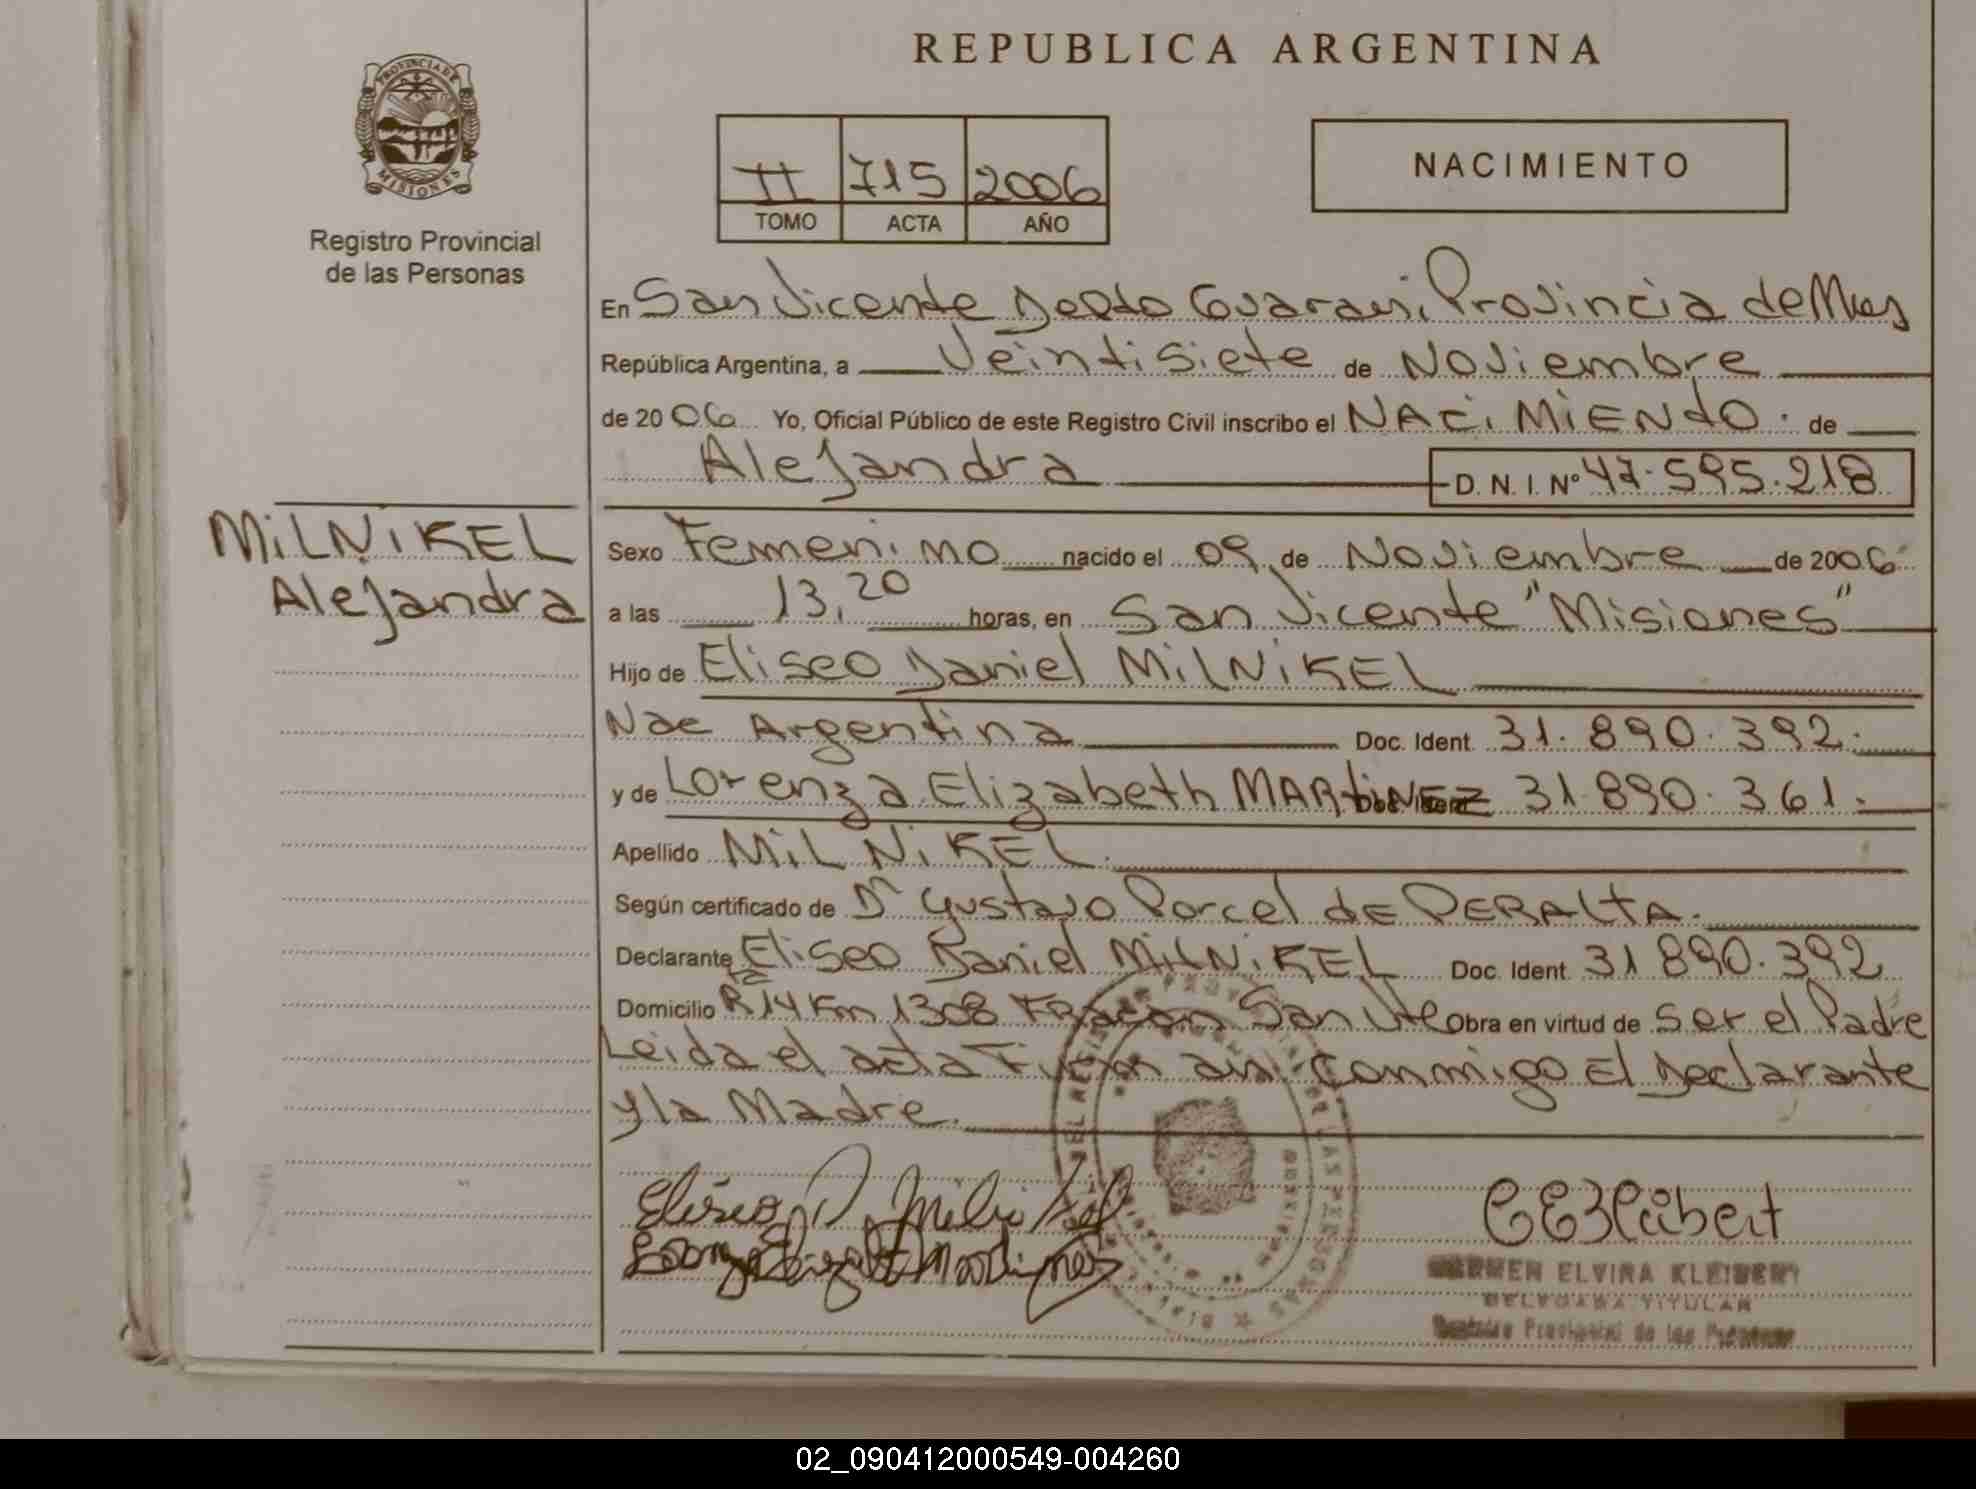 REPUBLICA ARGENTINA
PROVINCIA DE
MISIONES
Registro Provincial
de las Personas
II 715 2006
TOMO ACTA AÑO
NACIMIENTO
En San Vicente Dpto Guarani, Provincia de Mnes
República Argentina, a Veintisiete de Noviembre
de 2006 Yo, Oficial Público de este Registro Civil inscribo el NACIMIENTO de
Alejandra D. N. I. Nº 47.595.218
MILNIKEL
Alejandra
Sexo Femenino nacido el 09 de Noviembre de 2006
a las 13,20 horas, en San Vicente "Misiones"
Hijo de Eliseo Daniel MILNIKEL
Nac Argentina Doc. Ident. 31.890.392.
y de Lorenza Elizabeth MARTINEZ 31.890.361.
Apellido MILNIKEL.
Según certificado de Dr Gustavo Porcel de PERALTA.
Declarante Eliseo Daniel MILNIKEL Doc. Ident. 31 890.392
Domicilio Rta 14 Km 1308 FRACAN San Vte Obra en virtud de ser el Padre
Leida el acta Firman conmigo El Declarante
y la Madre.
Eliseo D. Milnikel
Lorenza Elizabeth Martinez
CEKleibert
CARMEN ELVIRA KLEIBERT
DELEGADA TITULAR
Registro Provincial de las Personas
02_090412000549-004260